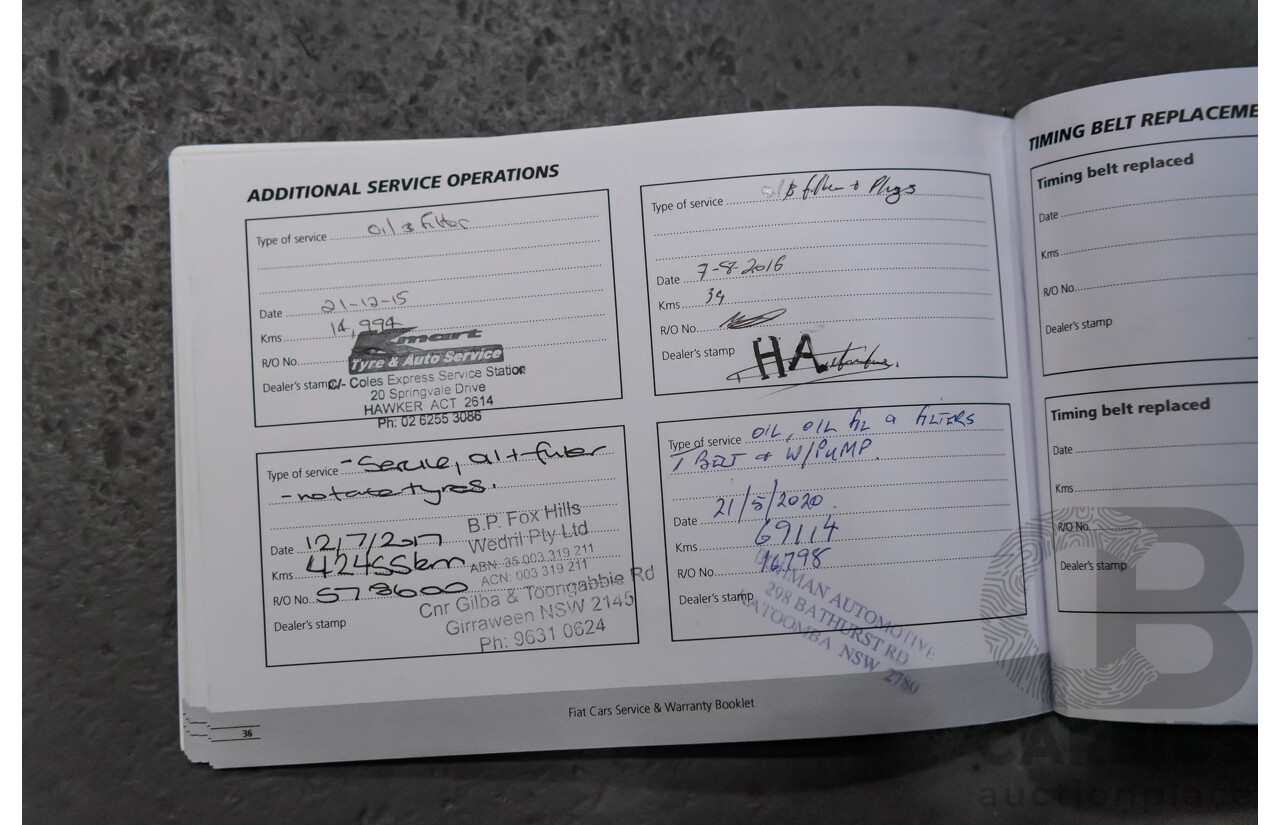 ADDITIONAL SERVICE OPERATIONS
Type of service oil & Filter
Date 21-12-15
Kms 14,994
R/O No.
Kmart
Tyre & Auto Service
Dealer's stamp
C/- Coles Express Service Station
20 Springvale Drive
HAWKER ACT 2614
Ph: 02 6255 3086
Type of service & filter + Plugs
Date 7-8-2016
Kms 34
R/O No.
Dealer's stamp HA
Type of service - Service, oil + filter
- rotate tyres.
Date 12/7/2017
Kms 42455km
R/O No. 573600
Dealer's stamp
B.P. Fox Hills
Wedril Pty Ltd
ABN: 35 003 319 211
ACN: 003 319 211
Cnr Gilba & Toongabbie Rd
Girraween NSW 2145
Ph: 9631 0624
Type of service OIL, OIL FILTERS
T BELT + W/PUMP.
Date 21/5/2020
Kms 69114
R/O No. 16798
Dealer's stamp
AUTOMOTIVE
298 BATHURST RD
KATOOMBA NSW 2780
36
Fiat Cars Service & Warranty Booklet
TIMING BELT REPLACEME
Timing belt replaced
Date
Kms
R/O No.
Dealer's stamp
Timing belt replaced
Date
Kms
R/O No.
Dealer's stamp
B
auctionplace